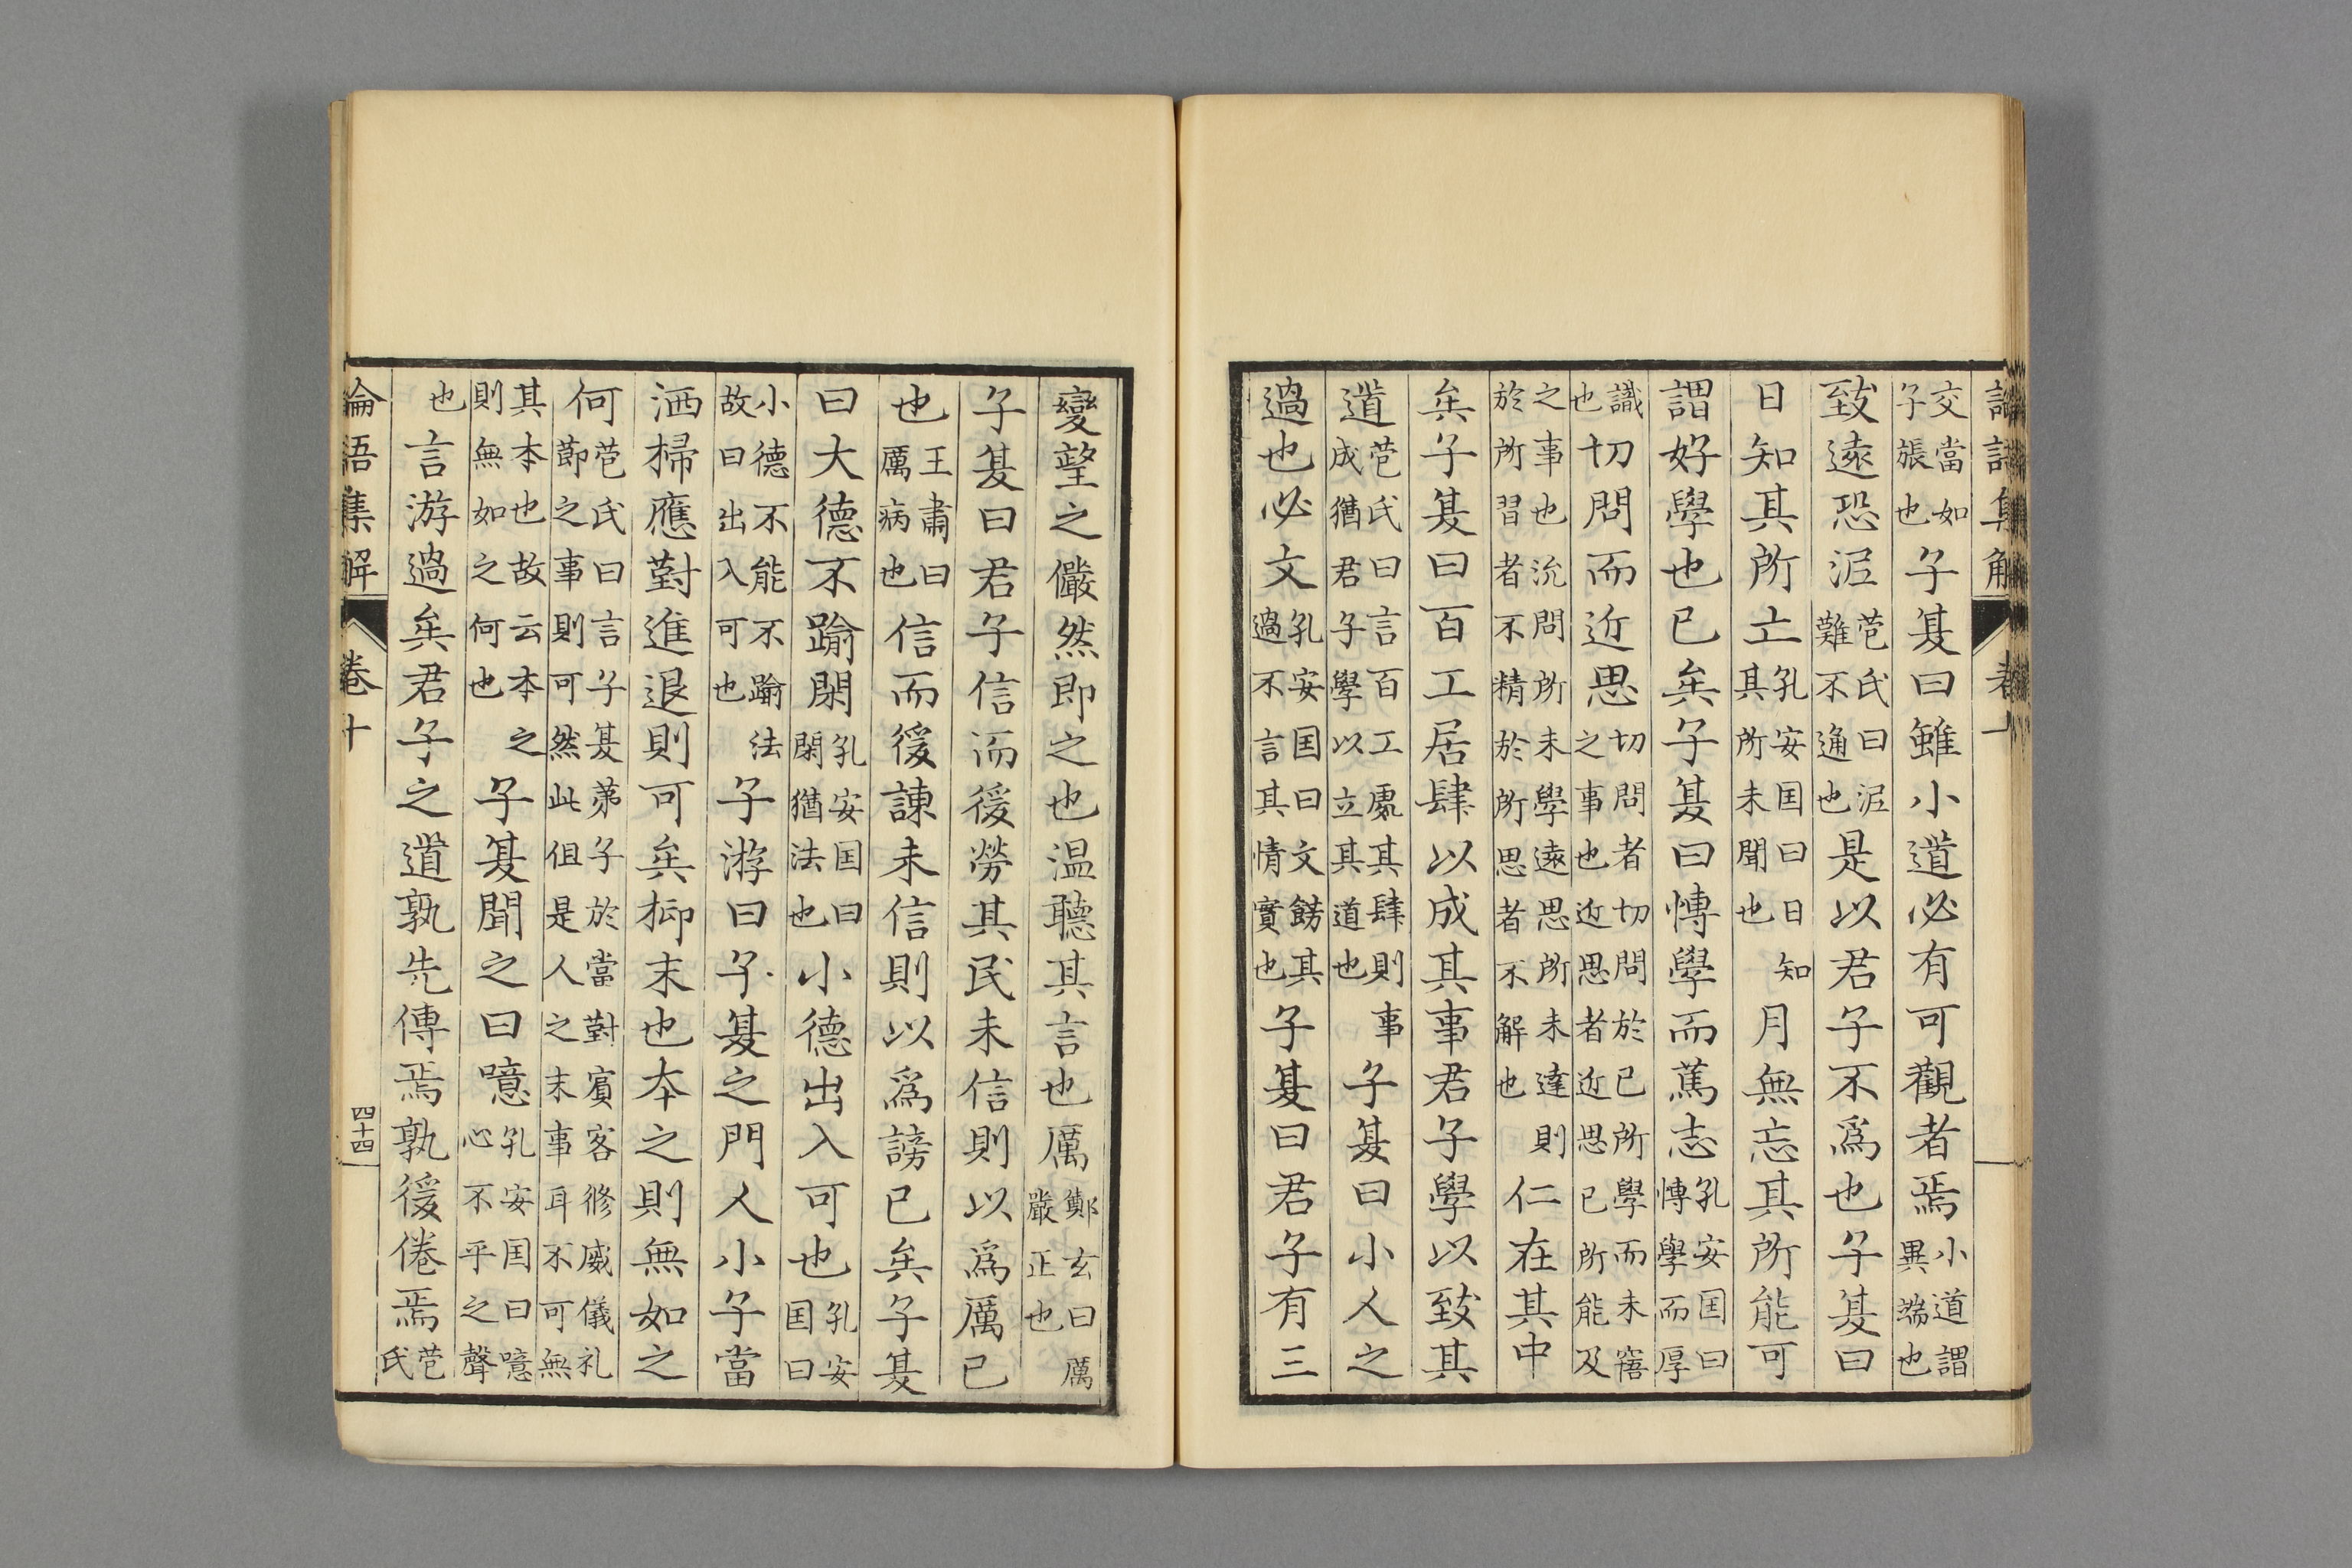 交當如子張也子夏曰雖小道必有可觀者焉小道謂異端也
致遠恐泥苞氏曰泥難不通也是以君子不爲也子夏曰
日知其所亡孔安囯曰日知其所未聞也月無忘其所能可
謂好學也已矣子夏曰博學而篤志孔安囯曰博學而厚
識也切問而近思切問者切問於已所學而未寤之事也近思者近思已所能及
之事也汎問所未學遠思所未達則於所習者不精於所思者不解也仁在其中
矣子夏曰百工居肆以成其事君子學以致其
道苞氏曰言百工處其肆則事成猶君子學以立其道也子夏曰小人之
過也必文孔安囯曰文餝其過不言其情實也子夏曰君子有三
變望之儼然即之也温聽其言也厲鄭玄曰厲嚴正也
子夏曰君子信而後勞其民未信則以爲厲已
也王肅曰厲病也信而後諫未信則以爲謗已矣子夏
曰大德不踰閑孔安囯曰閑猶法也小德出入可也孔安囯曰
小德不能不踰法故曰出入可也子游曰子夏之門人小子當
洒掃應對進退則可矣抑末也本之則無如之
何苞氏曰言子夏弟子於當對賓客修威儀礼節之事則可然此但是人之末事耳不可無
其本也故云本之則無如之何也子夏聞之曰噫孔安囯曰噫心不平之聲
也言游過矣君子之道孰先傳焉孰後倦焉苞氏
論語集解 卷十 四十四